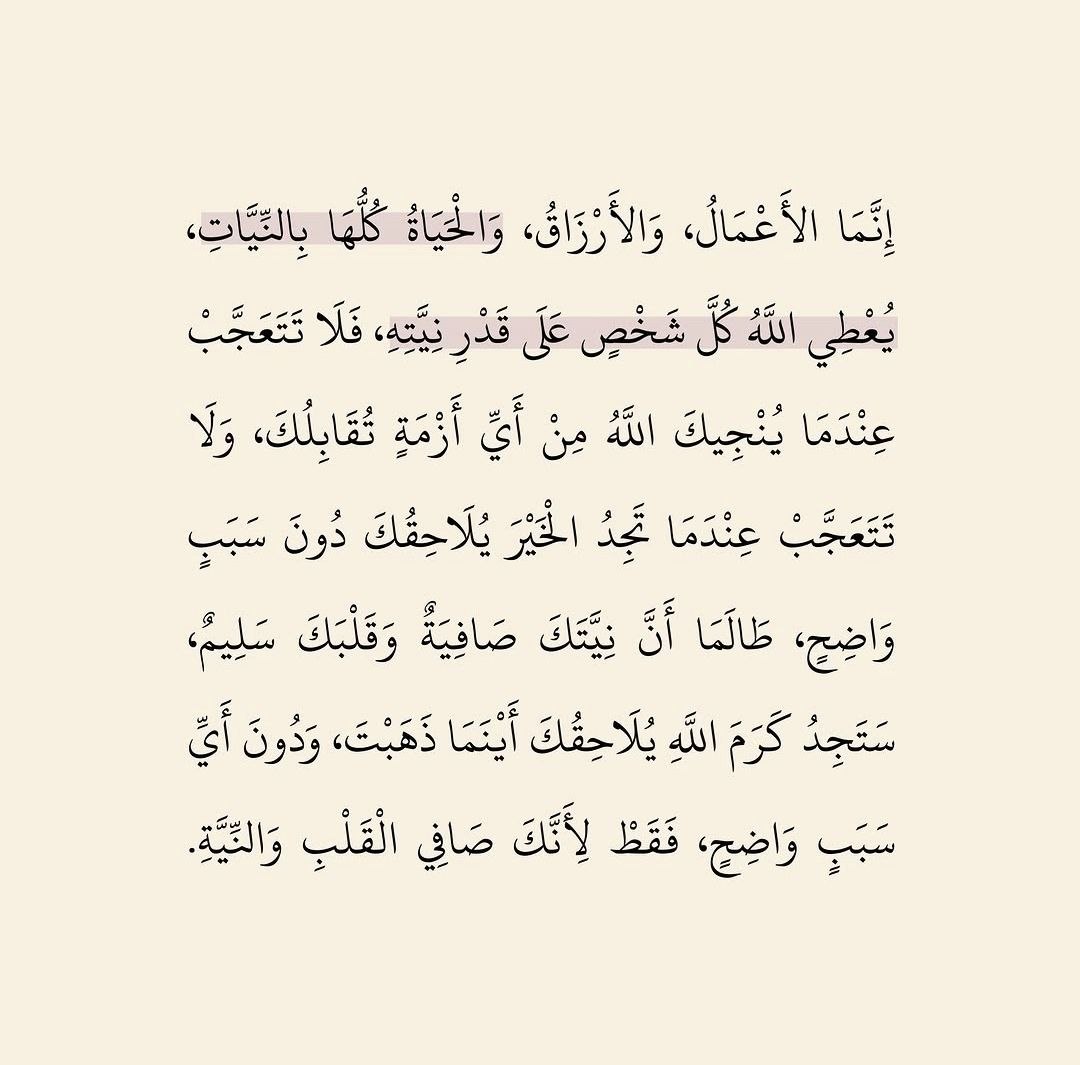 إِنَّمَا الأَعْمَالُ، وَالأَرْزَاقُ، وَالْحَيَاةُ كُلُّهَا بِالنِّيَّاتِ،
يُعْطِي اللَّهُ كُلَّ شَخْصٍ عَلَى قَدْرِ نِيَّتِهِ، فَلَا تَتَعَجَّبْ
عِنْدَمَا يُنْجِيكَ اللَّهُ مِنْ أَيِّ أَزْمَةٍ تُقَابِلُكَ، وَلَا
تَتَعَجَّبْ عِنْدَمَا تَجِدُ الْخَيْرَ يُلَاحِقُكَ دُونَ سَبَبٍ
وَاضِحٍ، طَالَمَا أَنَّ نِيَّتَكَ صَافِيَةٌ وَقَلْبَكَ سَلِيمٌ،
سَتَجِدُ كَرَمَ اللَّهِ يُلَاحِقُكَ أَيْنَمَا ذَهَبْتَ، وَدُونَ أَيِّ
سَبَبٍ وَاضِحٍ، فَقَطْ لِأَنَّكَ صَافِي الْقَلْبِ وَالنِّيَّةِ.